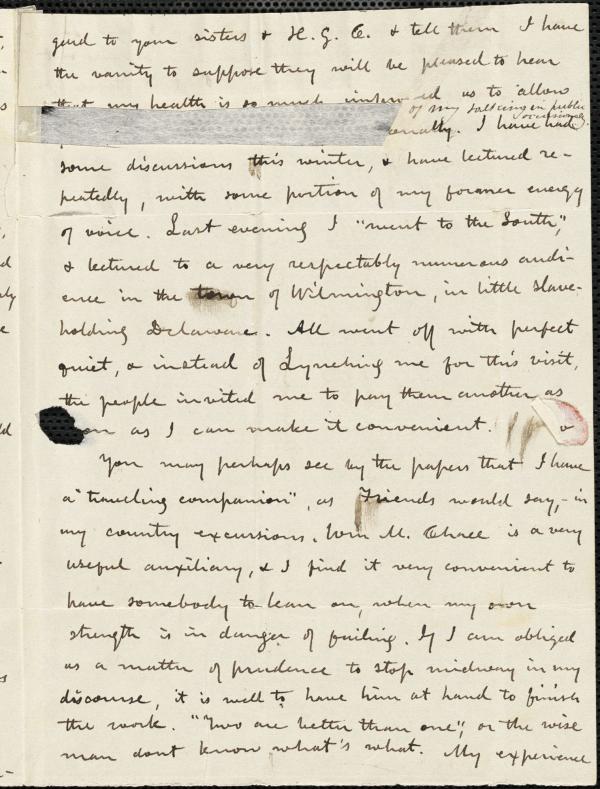 gard to your sisters & H. G. C. & tell them I have
the vanity to suppose they will be pleased to hear
that my health is so much improved as to allow
of my talking in public
occasionally.
onally. I have had
some discussions this winter, & have lectured re-
peatedly, with some portion of my former energy
of voice. Last evening I "went to the South,"
& lectured to a very respectably numerous audi-
ence in the town of Wilmington, in little slave-
holding Delaware. All went off with perfect
quiet, & instead of Lynching me for this visit,
the people invited me to pay them another as
oon as I can make it convenient.
You may perhaps see by the papers that I have
a "travelling companion", as Friends would say, - in
my country excursions. Wm M. Chace is a very
useful auxiliary, & I find it very convenient to
have somebody to lean on, when my own
strength is in danger of failing. If I am obliged
as a matter of prudence to stop midway in my
discourse, it is well to have him at hand to finish
the work. "Two are better than one", or the wise
man dont know what's what. My experience